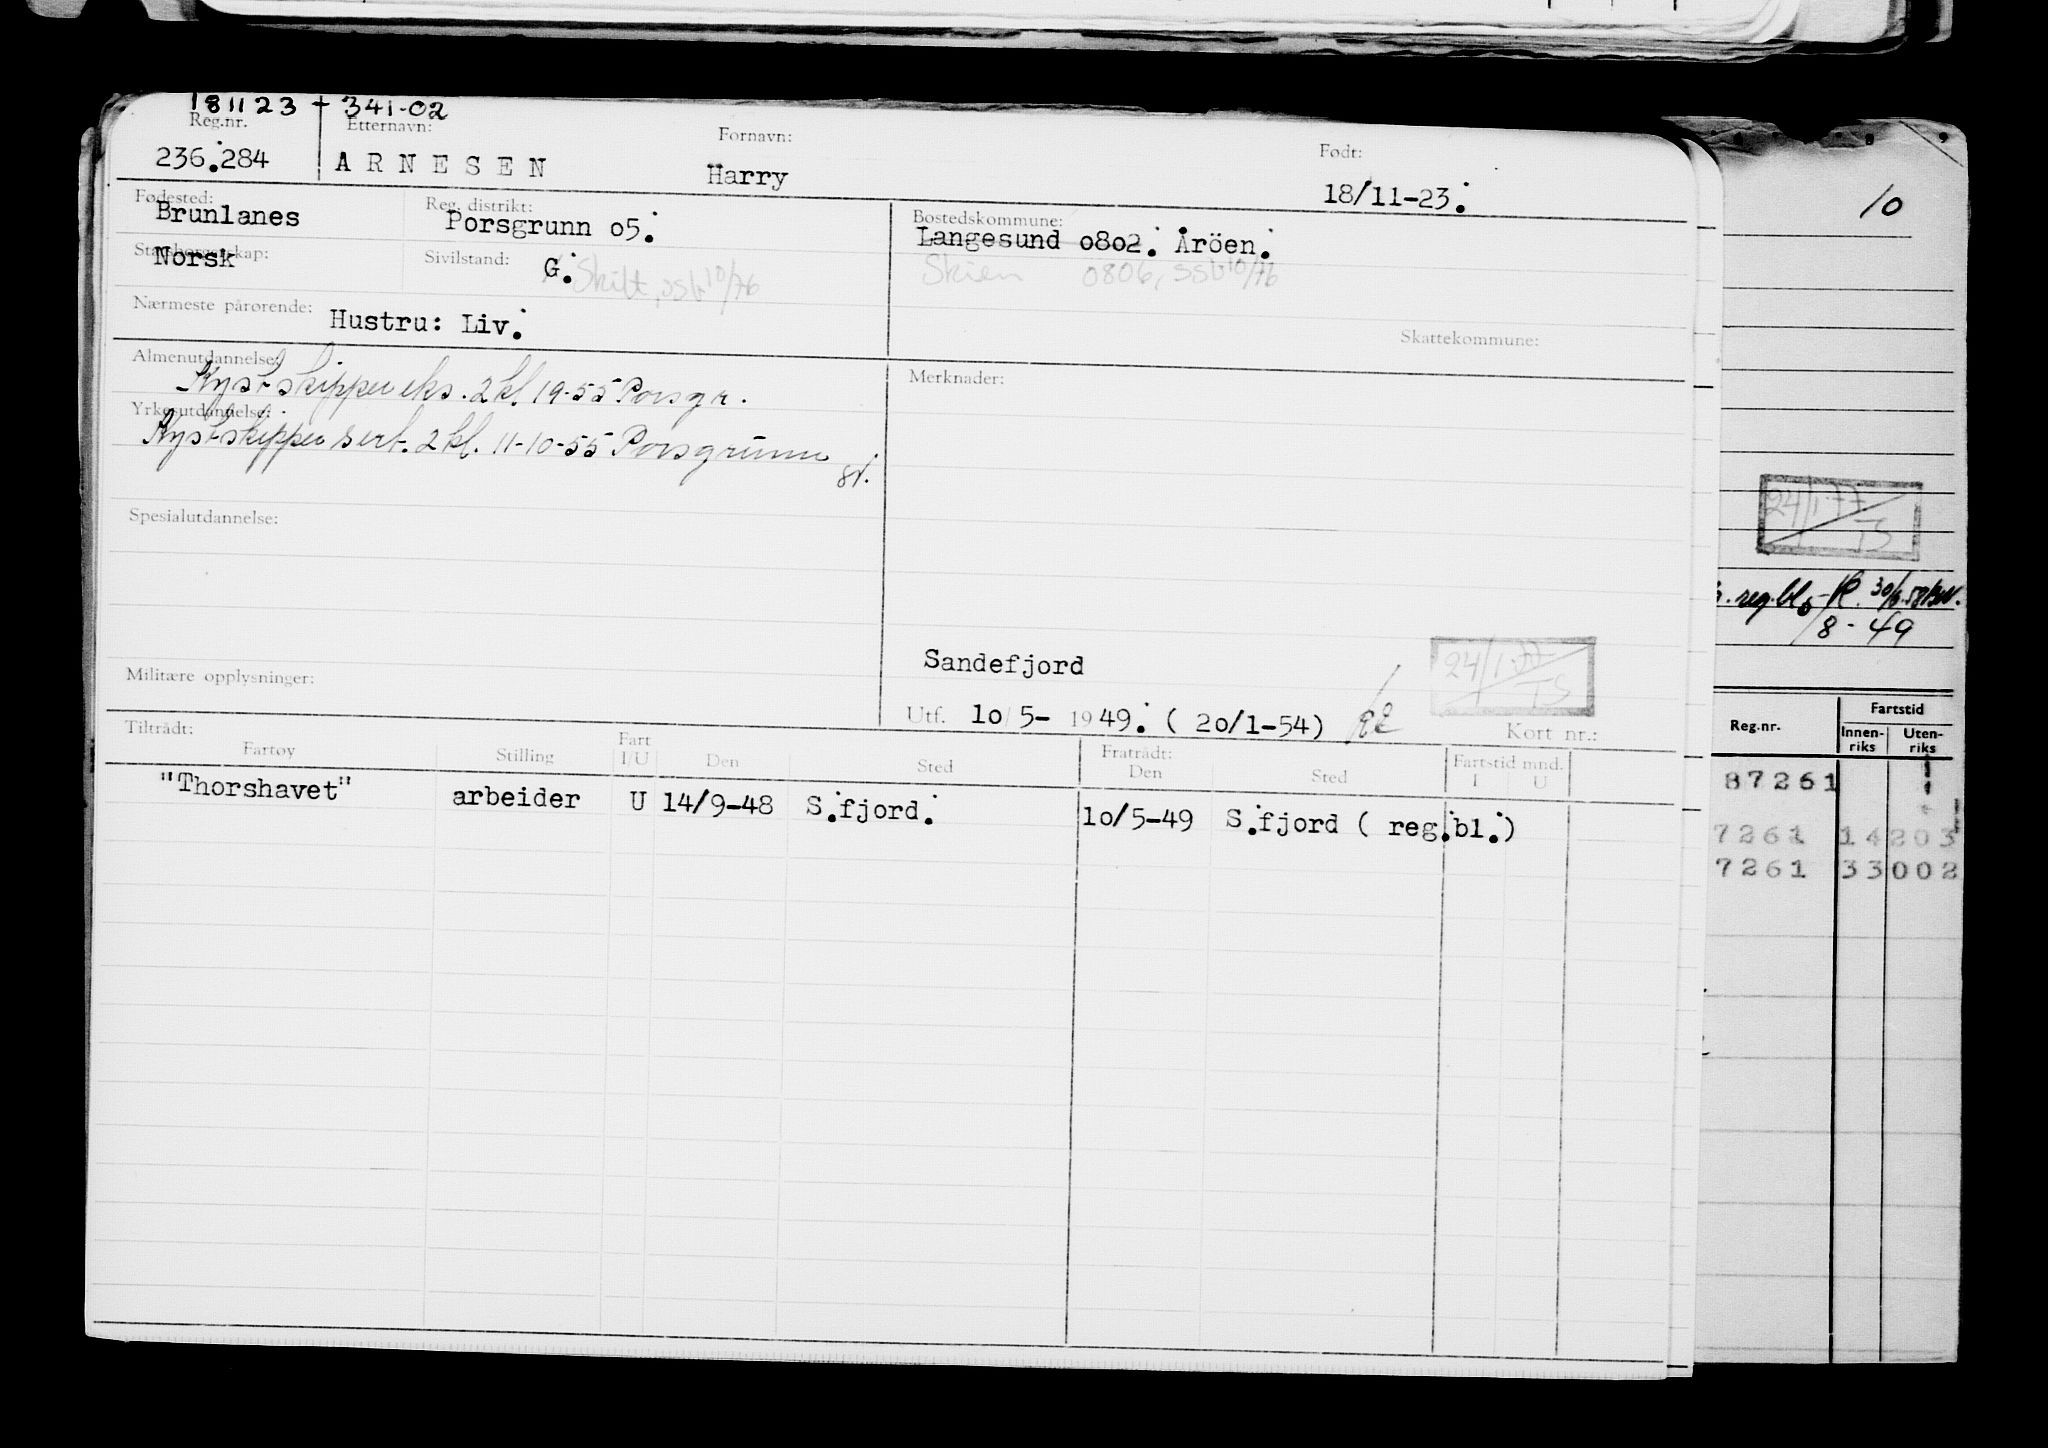 181123 + 341-02
Reg.nr. Etternavn: Fornavn: Født:
236.284 ARNESEN Harry 18/11-23.
Fødested: Reg. distrikt: Bostedskommune:
Brunlanes Porsgrunn o5. Langesund o8o2. Åröen.
Statsborgerskap: Sivilstand:
Norsk G. Skilt, ssb 10/76 Skien 0806, ssb 10/76
Nærmeste pårørende: Hustru: Liv. Skattekommune:
Almenutdannelse: Merknader:
Kystskipper eks. 2 kl. 19-55 Porsgr.
Yrkesutdannelse:
Kystskipper sert. 2 kl. 11-10-55 Porsgrunn
Spesialutdannelse:
Sandefjord 24/1-77 TS
Militære opplysninger:
Utf. 1o/ 5- 1949. ( 2o/1-54)
Kort nr.:
Tiltrådt: Fratrådt:
Fartøy Stilling Fart I/U Den Sted Den Sted Fartstid mnd. I U
"Thorshavet" arbeider U 14/9-48 S.fjord. 1o/5-49 S.fjord ( reg.bl.)
10
24/1-77 TS
reg.bl.
/8-49
Reg.nr. Fartstid
Innen-riks Uten-riks
87261
7261 14203
7261 33002